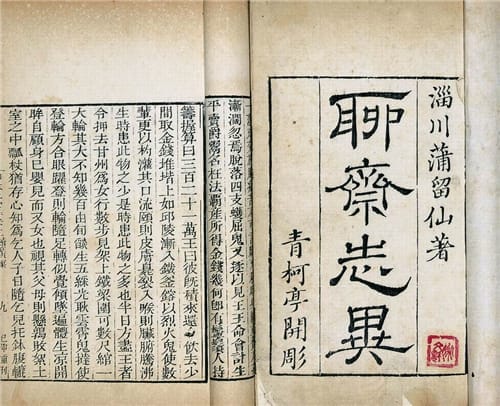 淄川蒲留仙著
聊齋志異
青柯亭開彫
漸濶忽焉脫落四支蠖屈鬼又逐以見王王命會計生
平賣爵鬻名枉法霸產所得金錢幾何即有鬡鬚人持
籌握算曰三百二十一萬王曰彼旣積來還令飲去少
間取金錢堆堦上如邱陵漸入鐵釜鎔以烈火鬼使數
輩更以杓灌其口流頤則皮膚臭裂入喉則臟腑騰沸
生時患此物之少是時患此物之多也半日方盡王者
令押去甘州爲女行數步見架上鐵梁圍可數尺綰一
大輪其大不知幾百由旬燄生五綵光耿雲霄鬼撻使
登輪方合眼躍登則輪隨足轉似覺傾墜遍體生涼開
眸自顧身已嬰兒而又女也視其父母則懸鶉敗絮土
室之中瓢杖猶存心知爲乞人子日隨乞兒托鉢腹轆